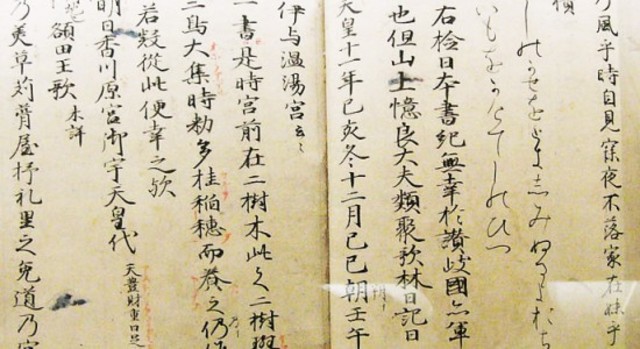 乃風乎時自見寐夜不落家在妹乎
しのかせをときしみぬるよおち
いもをかけてしのひつ
右検日本書紀無幸於讃岐國亦軍
也但山上憶良大夫類聚歌林曰記曰
天皇十一年己亥冬十二月己巳朔壬午
伊与温湯宮云々
一書是時宮前在二樹木此之二樹斑
二鳥大集時勅多挂稲穂而養之仍作
若疑從此便幸之歟
明日香川原宮御宇天皇代 天豊財重日足
額田王歌 未詳
乃美草苅葺屋杼礼里之兎道乃宮